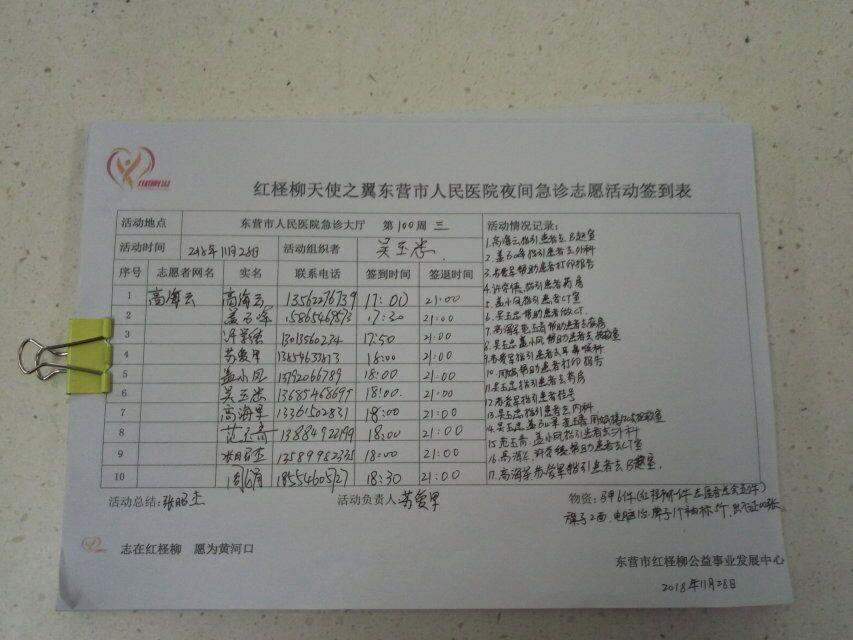 红柽柳天使之翼东营市人民医院夜间急诊志愿活动签到表
活动地点 东营市人民医院急诊大厅 第100周 三 活动情况记录:
活动时间 2018年11月28日 活动组织者 吴玉忠
序号 志愿者网名 实名 联系电话 签到时间 签退时间
1 高海云 高海云 13562276739 17:00 21:00
2 盖名峰 15865469573 17:30 21:00
3 17:50 21:00
4 苏爱军 18:00 21:00
5 盖小凤 18:00 21:00
6 吴玉忠 13685468695 18:00 21:00
7 高海军 13361502831 18:00 21:00
8 范玉青 18:00 21:00
9 张昭杰 13589962335 18:00 21:00
10 周娟 18554605727 18:30 21:00
1.高海云指引患者去B超室
2.盖名峰指引患者去外科
3.苏爱军帮助患者打印报告
4.许学德指引患者药房
5.盖小凤指引患者CT室
6.吴玉忠帮助患者做CT
7.高海军范玉青帮助患者去药房
8.吴玉忠盖小凤帮助患者去
9.苏爱军指引患者去耳鼻喉科
10.周娟帮助患者打印报告
11.吴玉忠指引患者去药房
12.苏爱军指引患者挂号
13.吴玉忠指引患者去内科
14.吴玉忠
15.范玉青.盖小凤指引患者去外科
16.高海军许学德帮助患者CT室
17.高海军苏爱军指引患者去B超室.
活动总结:张昭杰 活动负责人 苏爱军 物资:马甲6件(红柽柳1件志愿者总会五件)
旗子2面.电脑1台.牌子1个
志在红柽柳 愿为黄河口
东营市红柽柳公益事业发展中心
2018年11月28日